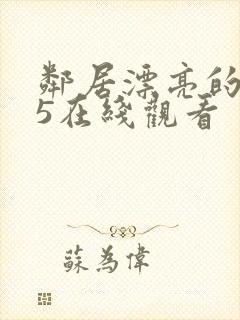 鄰居漂亮的
5在綫觀看
蘇為偉